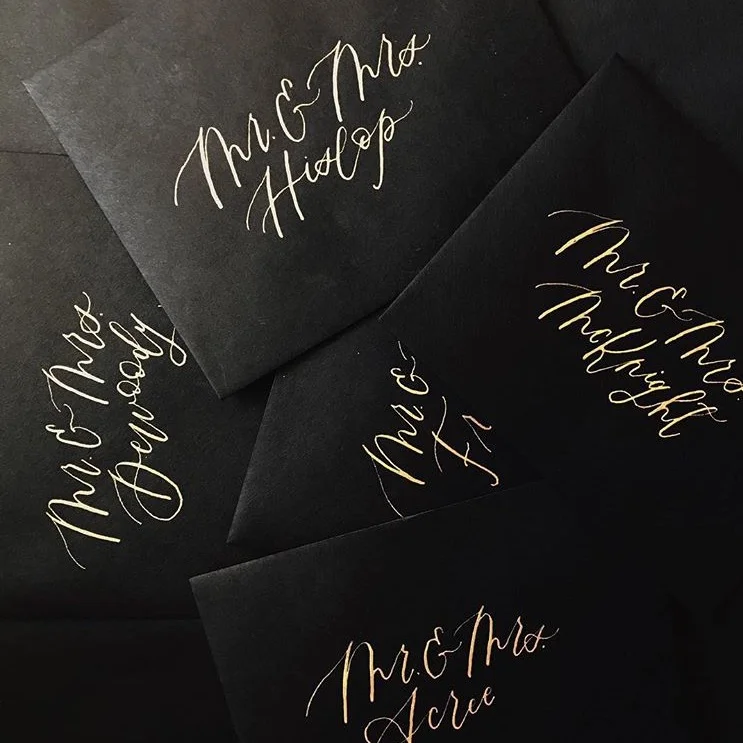 Mr. & Mrs.
Hislop
Mr. & Mrs.
McKnight
Mr. & Mrs.
Dewoody
Mr. &
Fr
Mr. & Mrs.
Acree